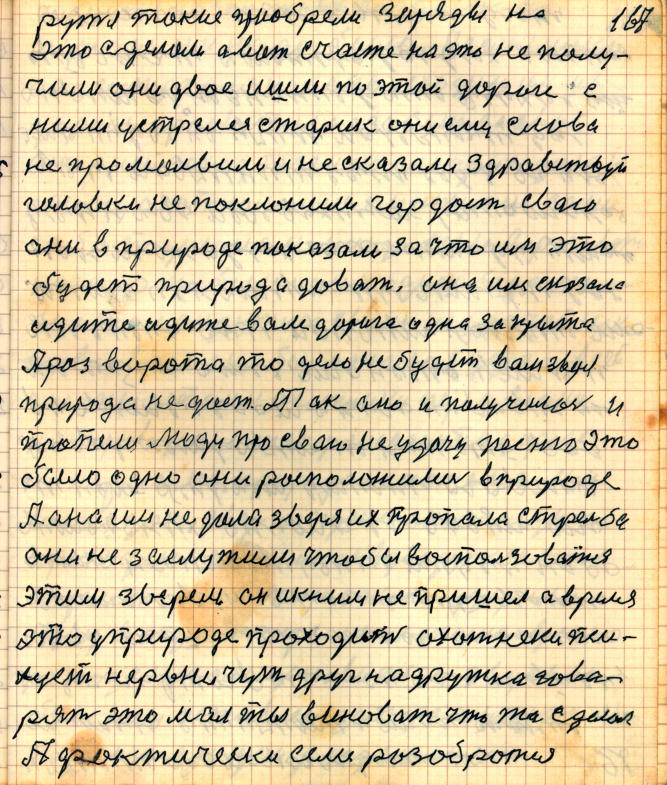 ружя такие приобрели заряды на 167
это сделали авот счасте на это не полу-
чили они двое ишли по этой дороги с
ними устрелея старик они ему слова
не промолвили и не сказали здравствуй
головки не поклонили гордост сваю
они в природе показали за что им это
будет природа доват. она им сказала
идите идите вам дорога одна закрыта
А раз ворота то дело не будет вам зверя
природа не дает. Так оно и получилос и
пропели люди про сваю не удачу песню это
было одно они росположилис в природе
А она им не дала зверя их пропала стрелба
они не заслужили чтобы воспользоватся
этим зверем он икним не пришел а время
это уприроде проходит охотнеки пси-
хует нервничут друг надружка гова-
рят это мол ты виноват что та сделал
А фрактически если розобратся